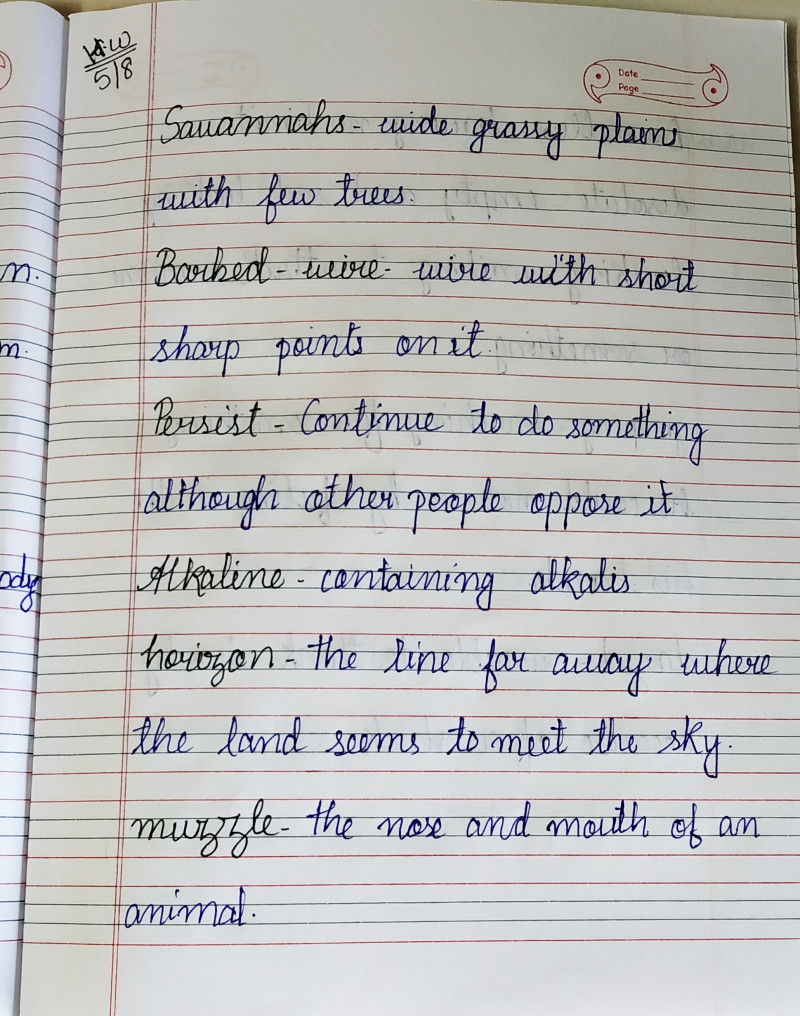 H.W
5/8
Date
Page
Savannahs - wide grassy plains
with few trees.
Barbed - wire - wire with short
sharp points on it.
Persist - Continue to do something
although other people oppose it
Alkaline - containing alkalis
horizon - the line far away where
the land seems to meet the sky.
muzzle - the nose and mouth of an
animal.
n.
m.
ody